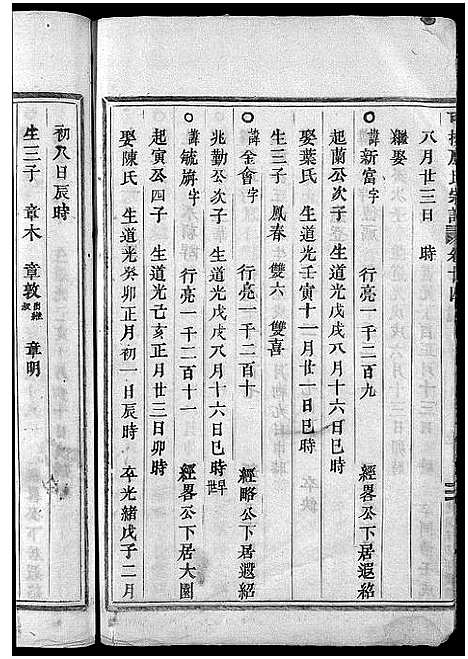 八月廿三日　時
繼娶
諱新富字　行亮一千二百九　經畧公下居遐紹
起蘭公次子　生道光戊戌八月十六日巳時
娶葉氏　生道光壬寅十一月廿一日巳時　卒缺
生三子　鳳春　雙六　雙喜
諱金會字　行亮一千二百十　經略公下居遐紹
兆勤公次子　生道光戊戌八月十六日巳時
諱毓㫋字　行亮一千二百十一　經畧公下居大園
起寅公四子　生道光己亥正月廿三日卯時
娶陳氏　生道光癸卯正月初一日辰時　卒光緒戊子二月
初八日辰時
生三子　章木　章敦　章明